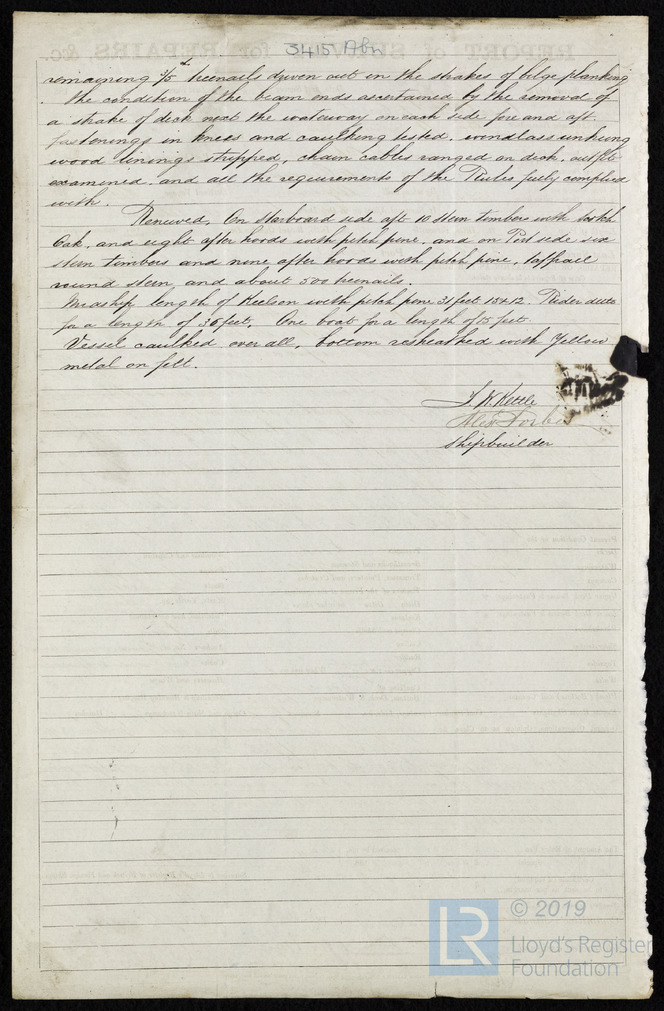 3415 Abn
remaining 3/5th treenails driven out in the strakes of bilge planking
. The condition of the beam ends ascertained by the removal of
a strake of deck next the waterway on each side fore and aft.
fastenings in knees and caulking tested. windlass unhung
wood linings stripped, chain cables ranged on deck, outfit
examined. and all the requirements of the Rules fully complied
with.
Renewed. On Starboard side aft 10 Stern timbers with
Oak. and eight after hoods with pitch pine. and on Port side six
Stern timbers and nine after hoods with pitch pine, taffrail
round stern, and about 500 treenails.
Midship length of Keelson with pitch pine 31 feet 15 x 12. Rider
for a length of 36 feet. One boat for a length of 15 feet.
Vessel caulked over all, bottom resheathed with Yellow
metal on felt.
Kettle
Alexr Forbes
Shipbuilder
LR
© 2019
Lloyd's Register
Foundation